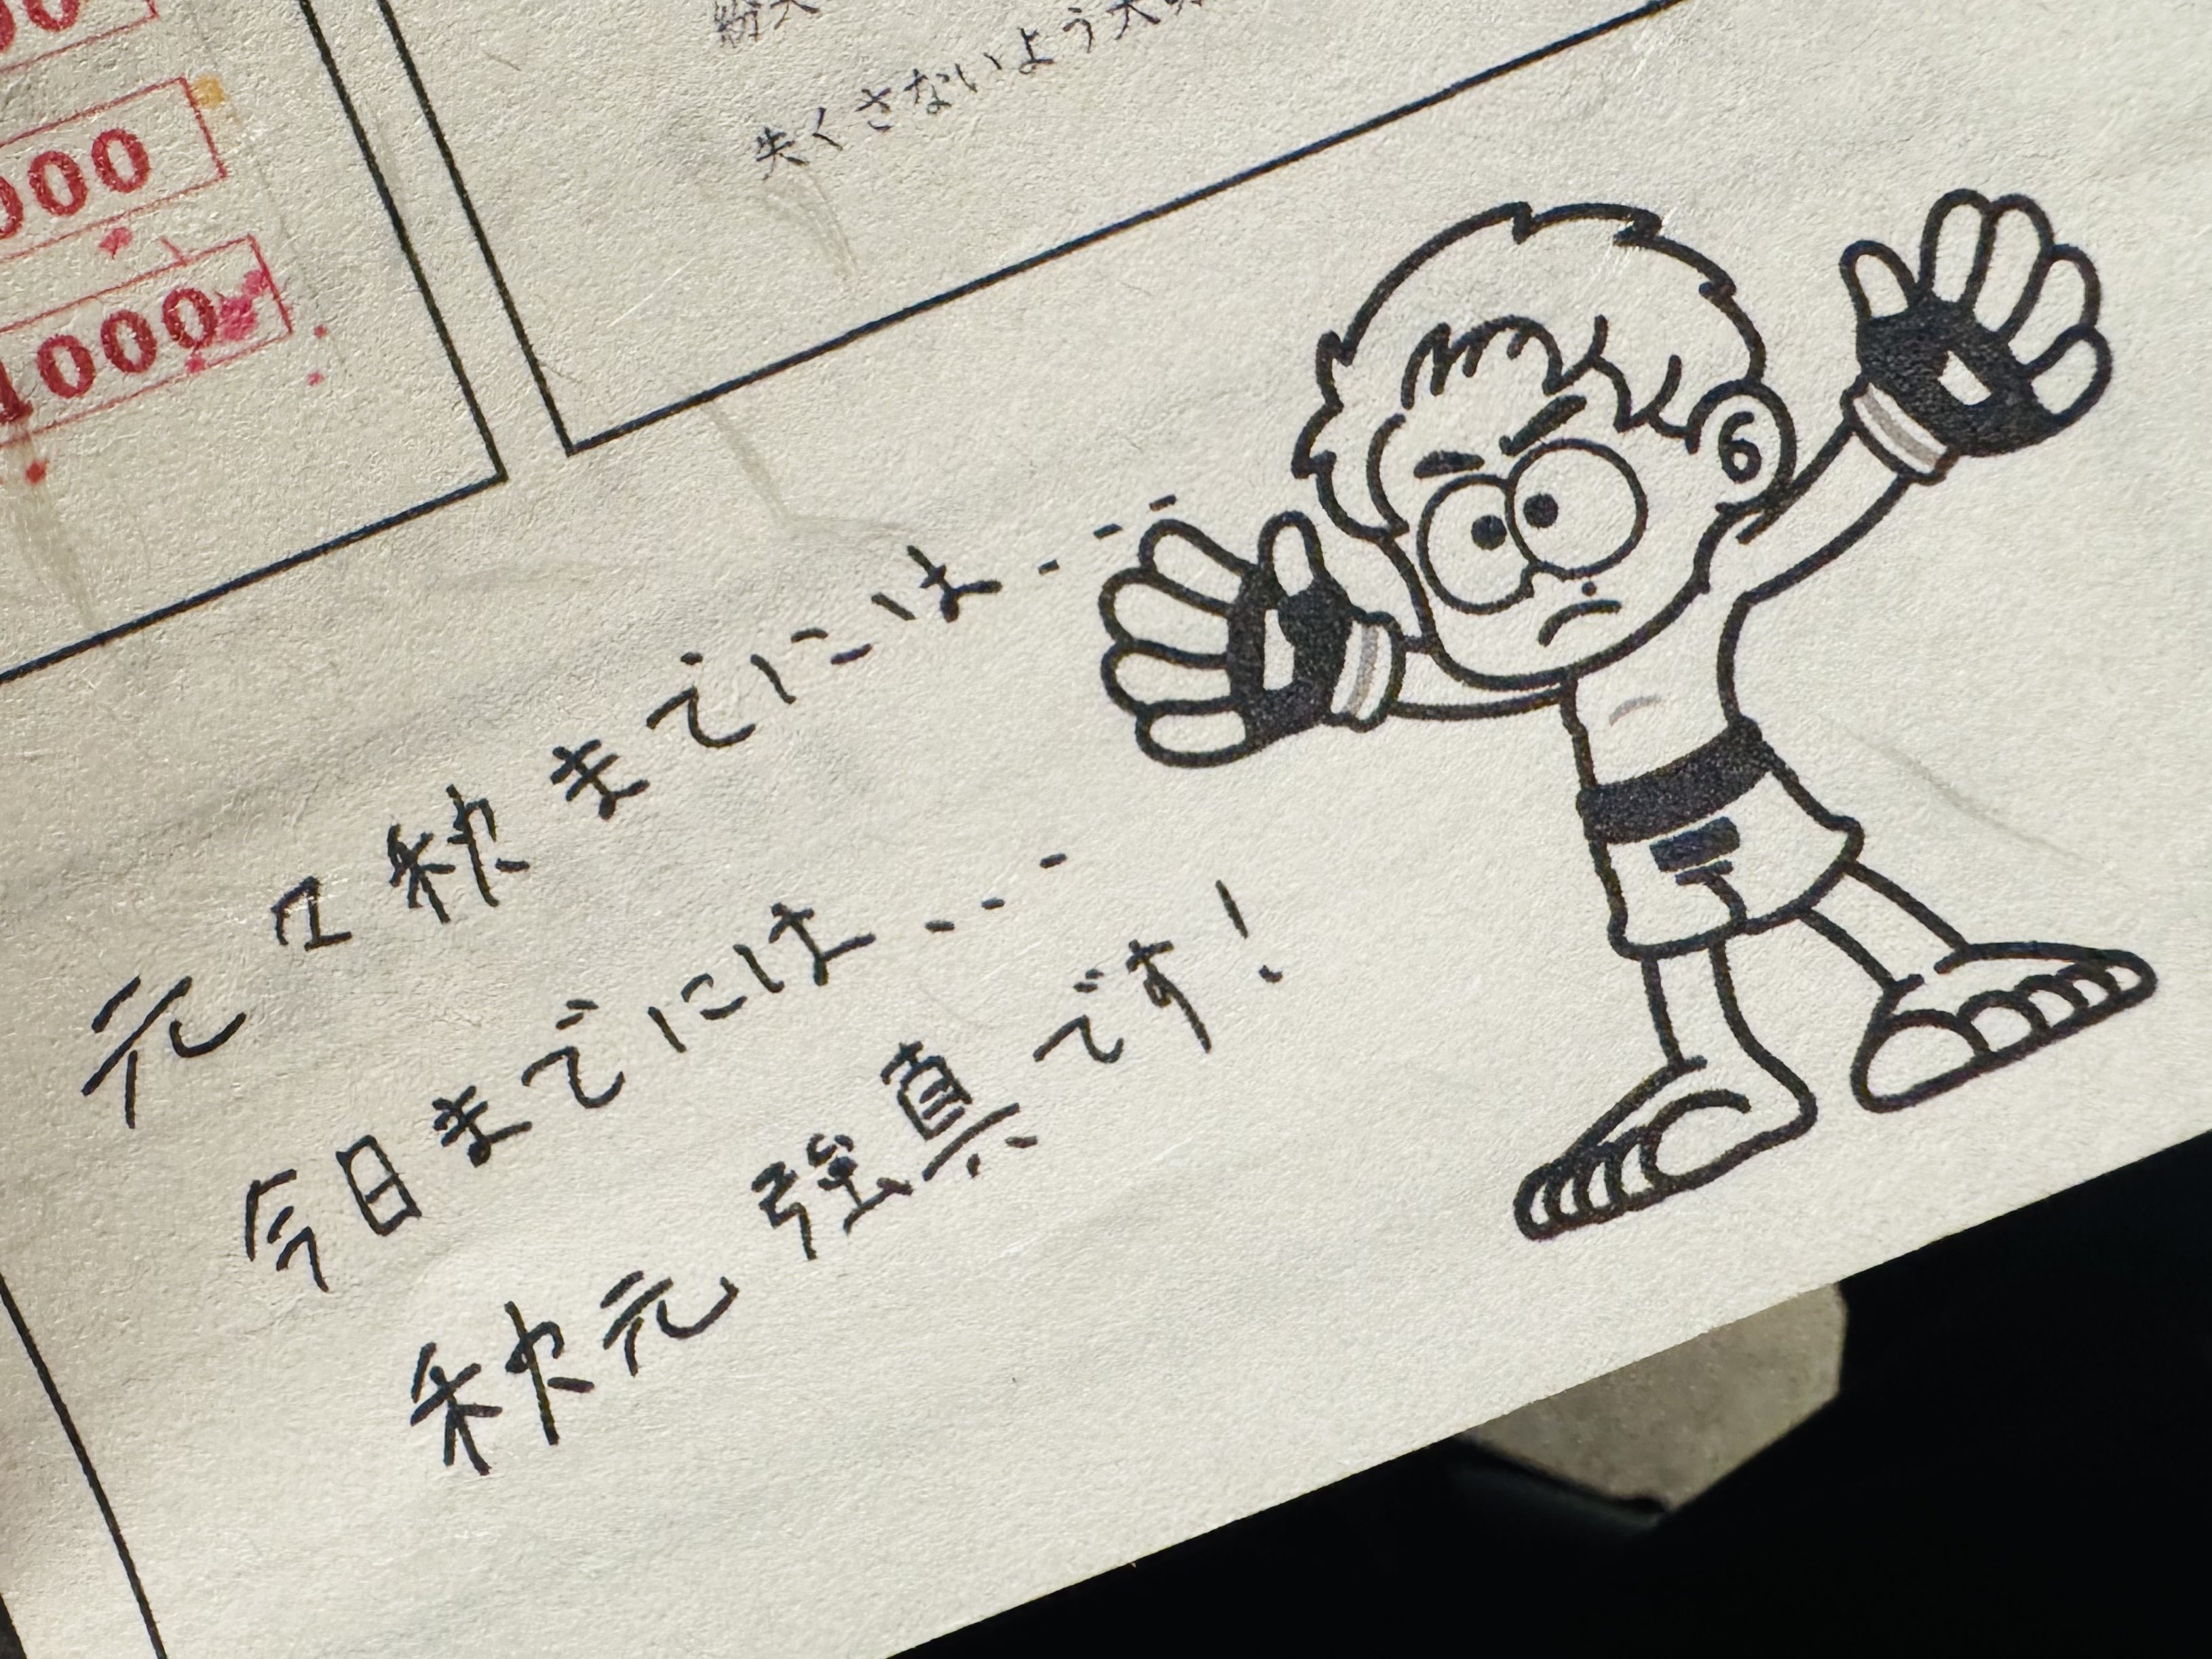 000
1000
紛失
失くさないよう大
元々秋までには・・・
今日までには・・・
秋元強真です!